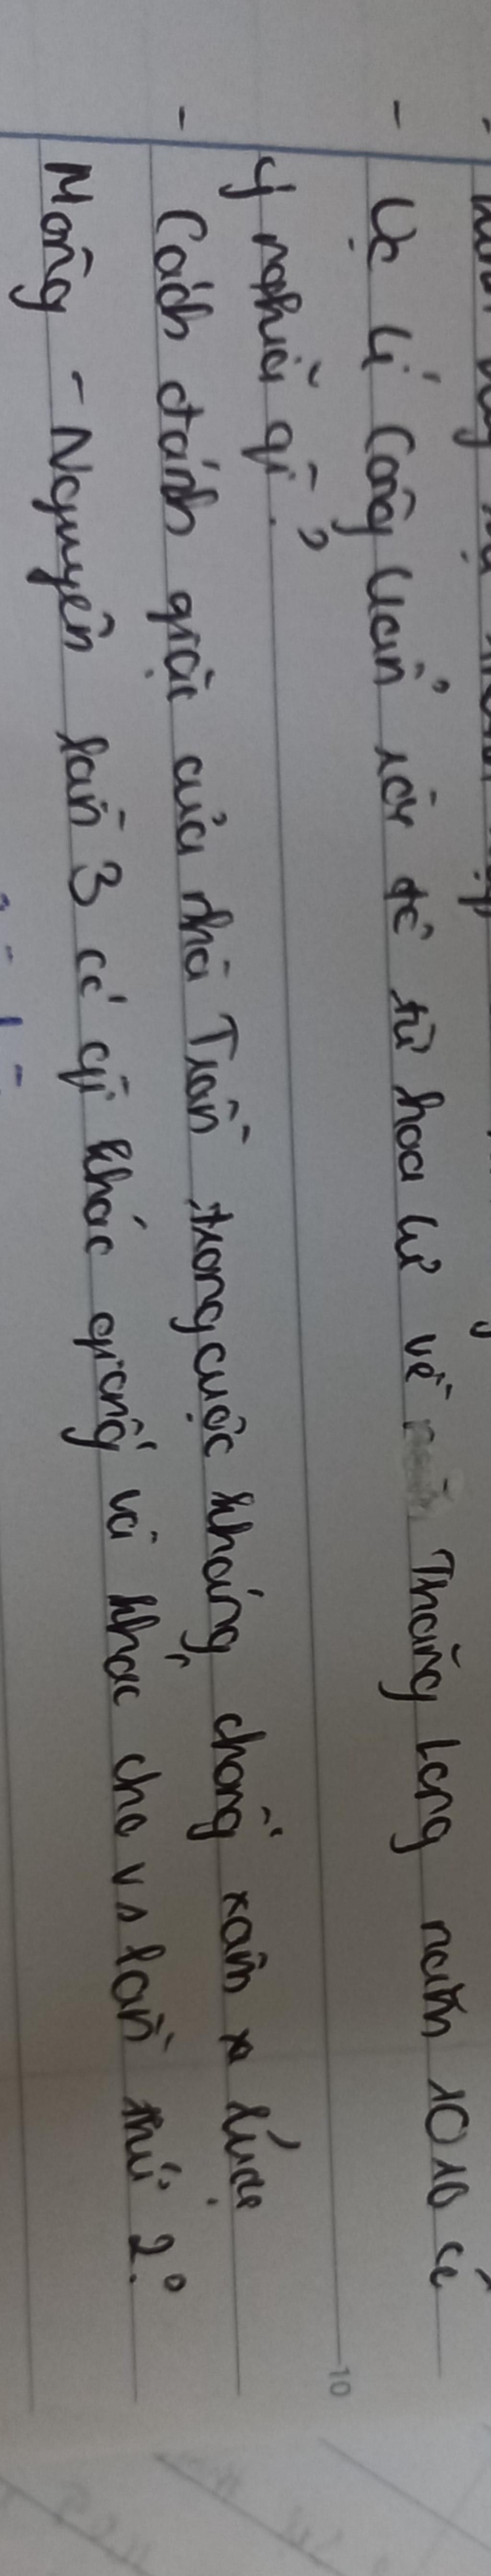 - Việc Lí Công Uẩn rời đô từ hoa lư về Thăng Long năm 1010 có
ý nghĩa gì?
- Cách đánh giặc của nhà Trần trong cuộc kháng chống xâm lược
Mông - Nguyên lần 3 có gì khác giống và khác cho vs lần thứ 2?
10